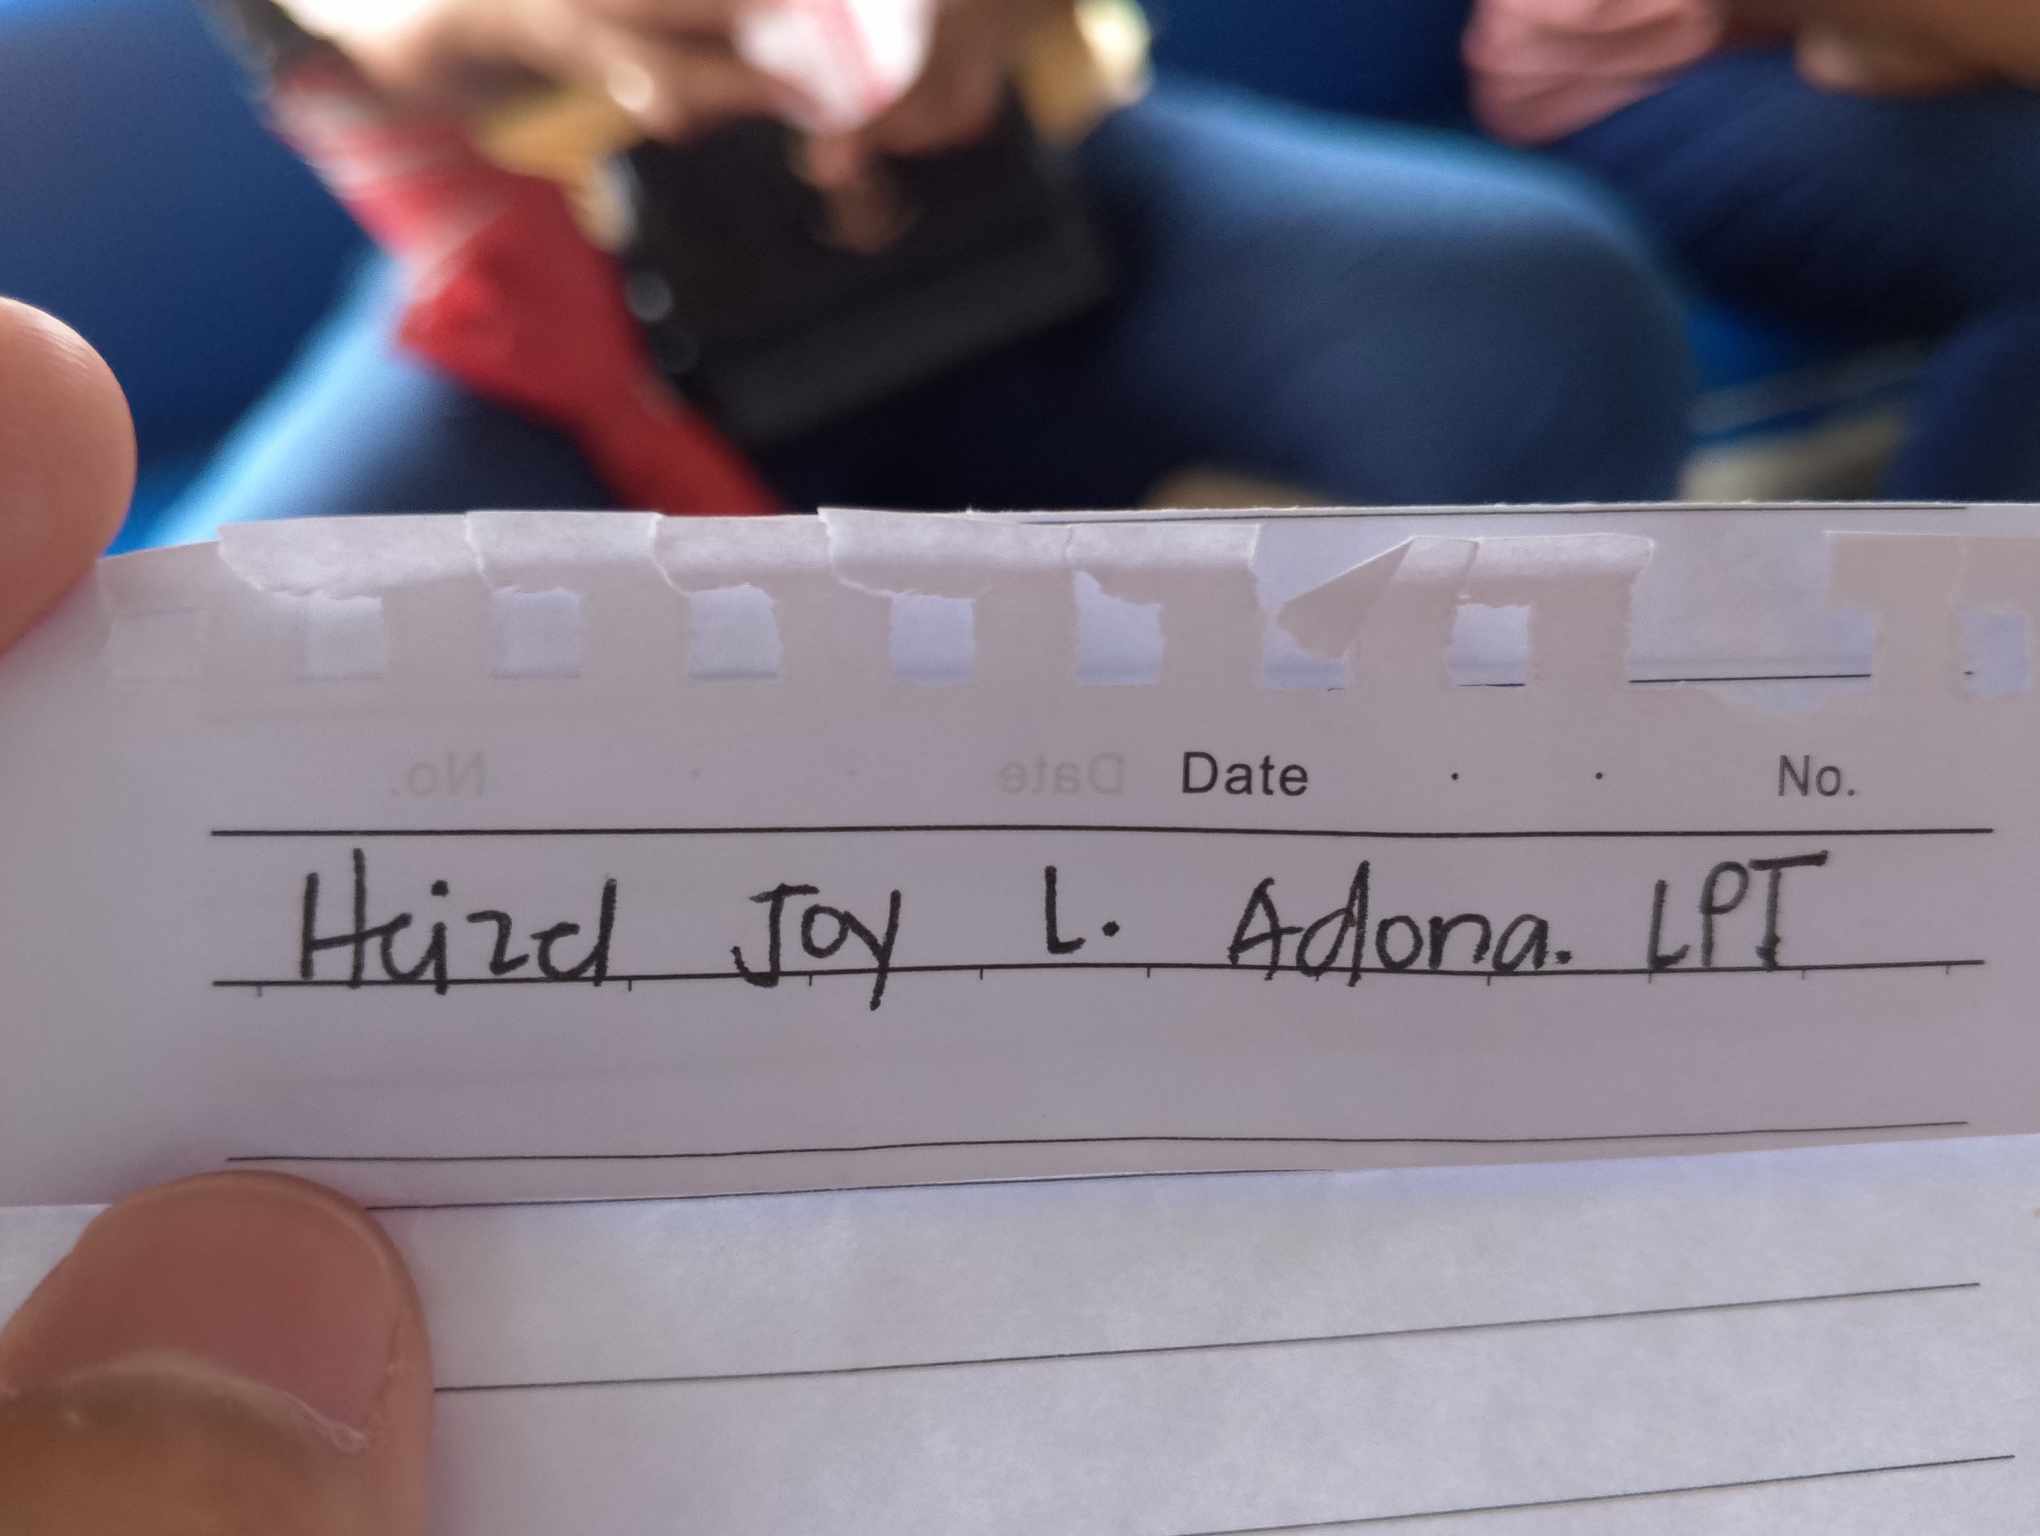 Date . . No.
Heizel Joy L. Adona. LPT